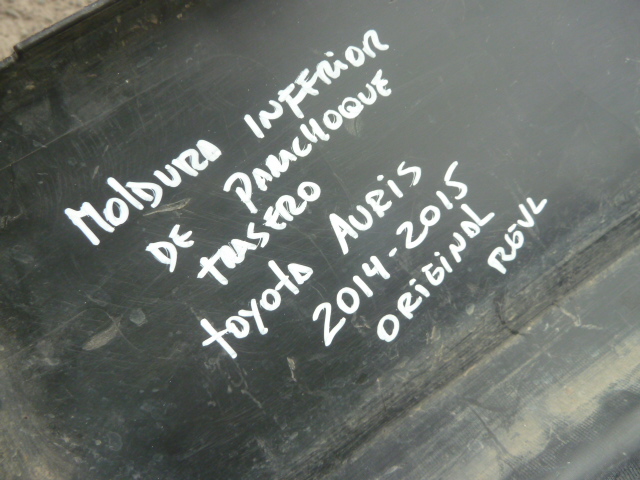 MOLDURA INFERIOR
DE PARACHOQUE
TRASERO
TOYOTA AURIS
2014-2015
ORIGINAL
RGVL